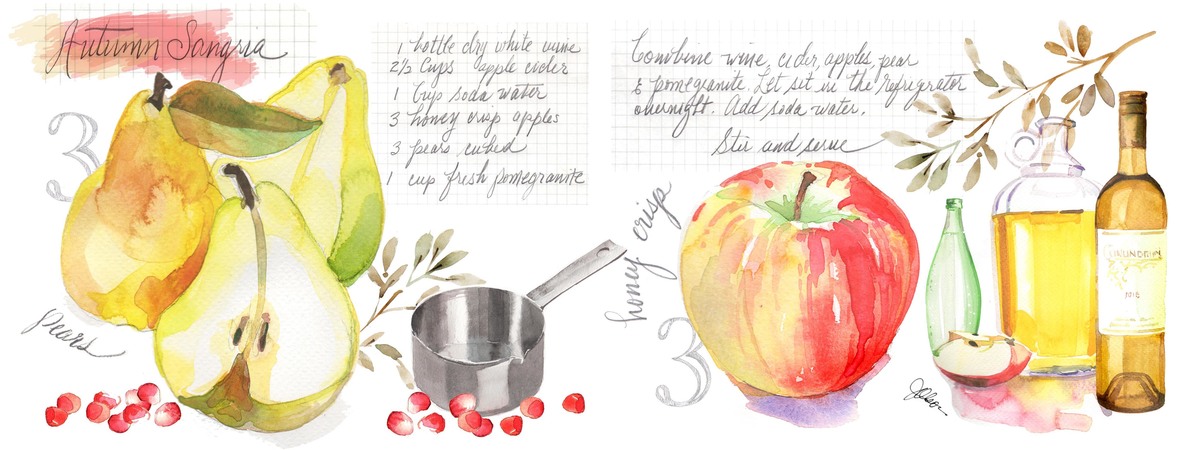 Autumn Sangria
1 bottle dry white wine
2½ Cups apple cider
1 Cup soda water
3 honey crisp apples
3 pears, cubed
1 cup fresh pomegranite
3
Pears
Combine wine, cider, apples, pear
& pomegranite. Let sit in the refrigrator
overnight. Add soda water.
Stir and serve
honey crisp
3
CONUNDRUM